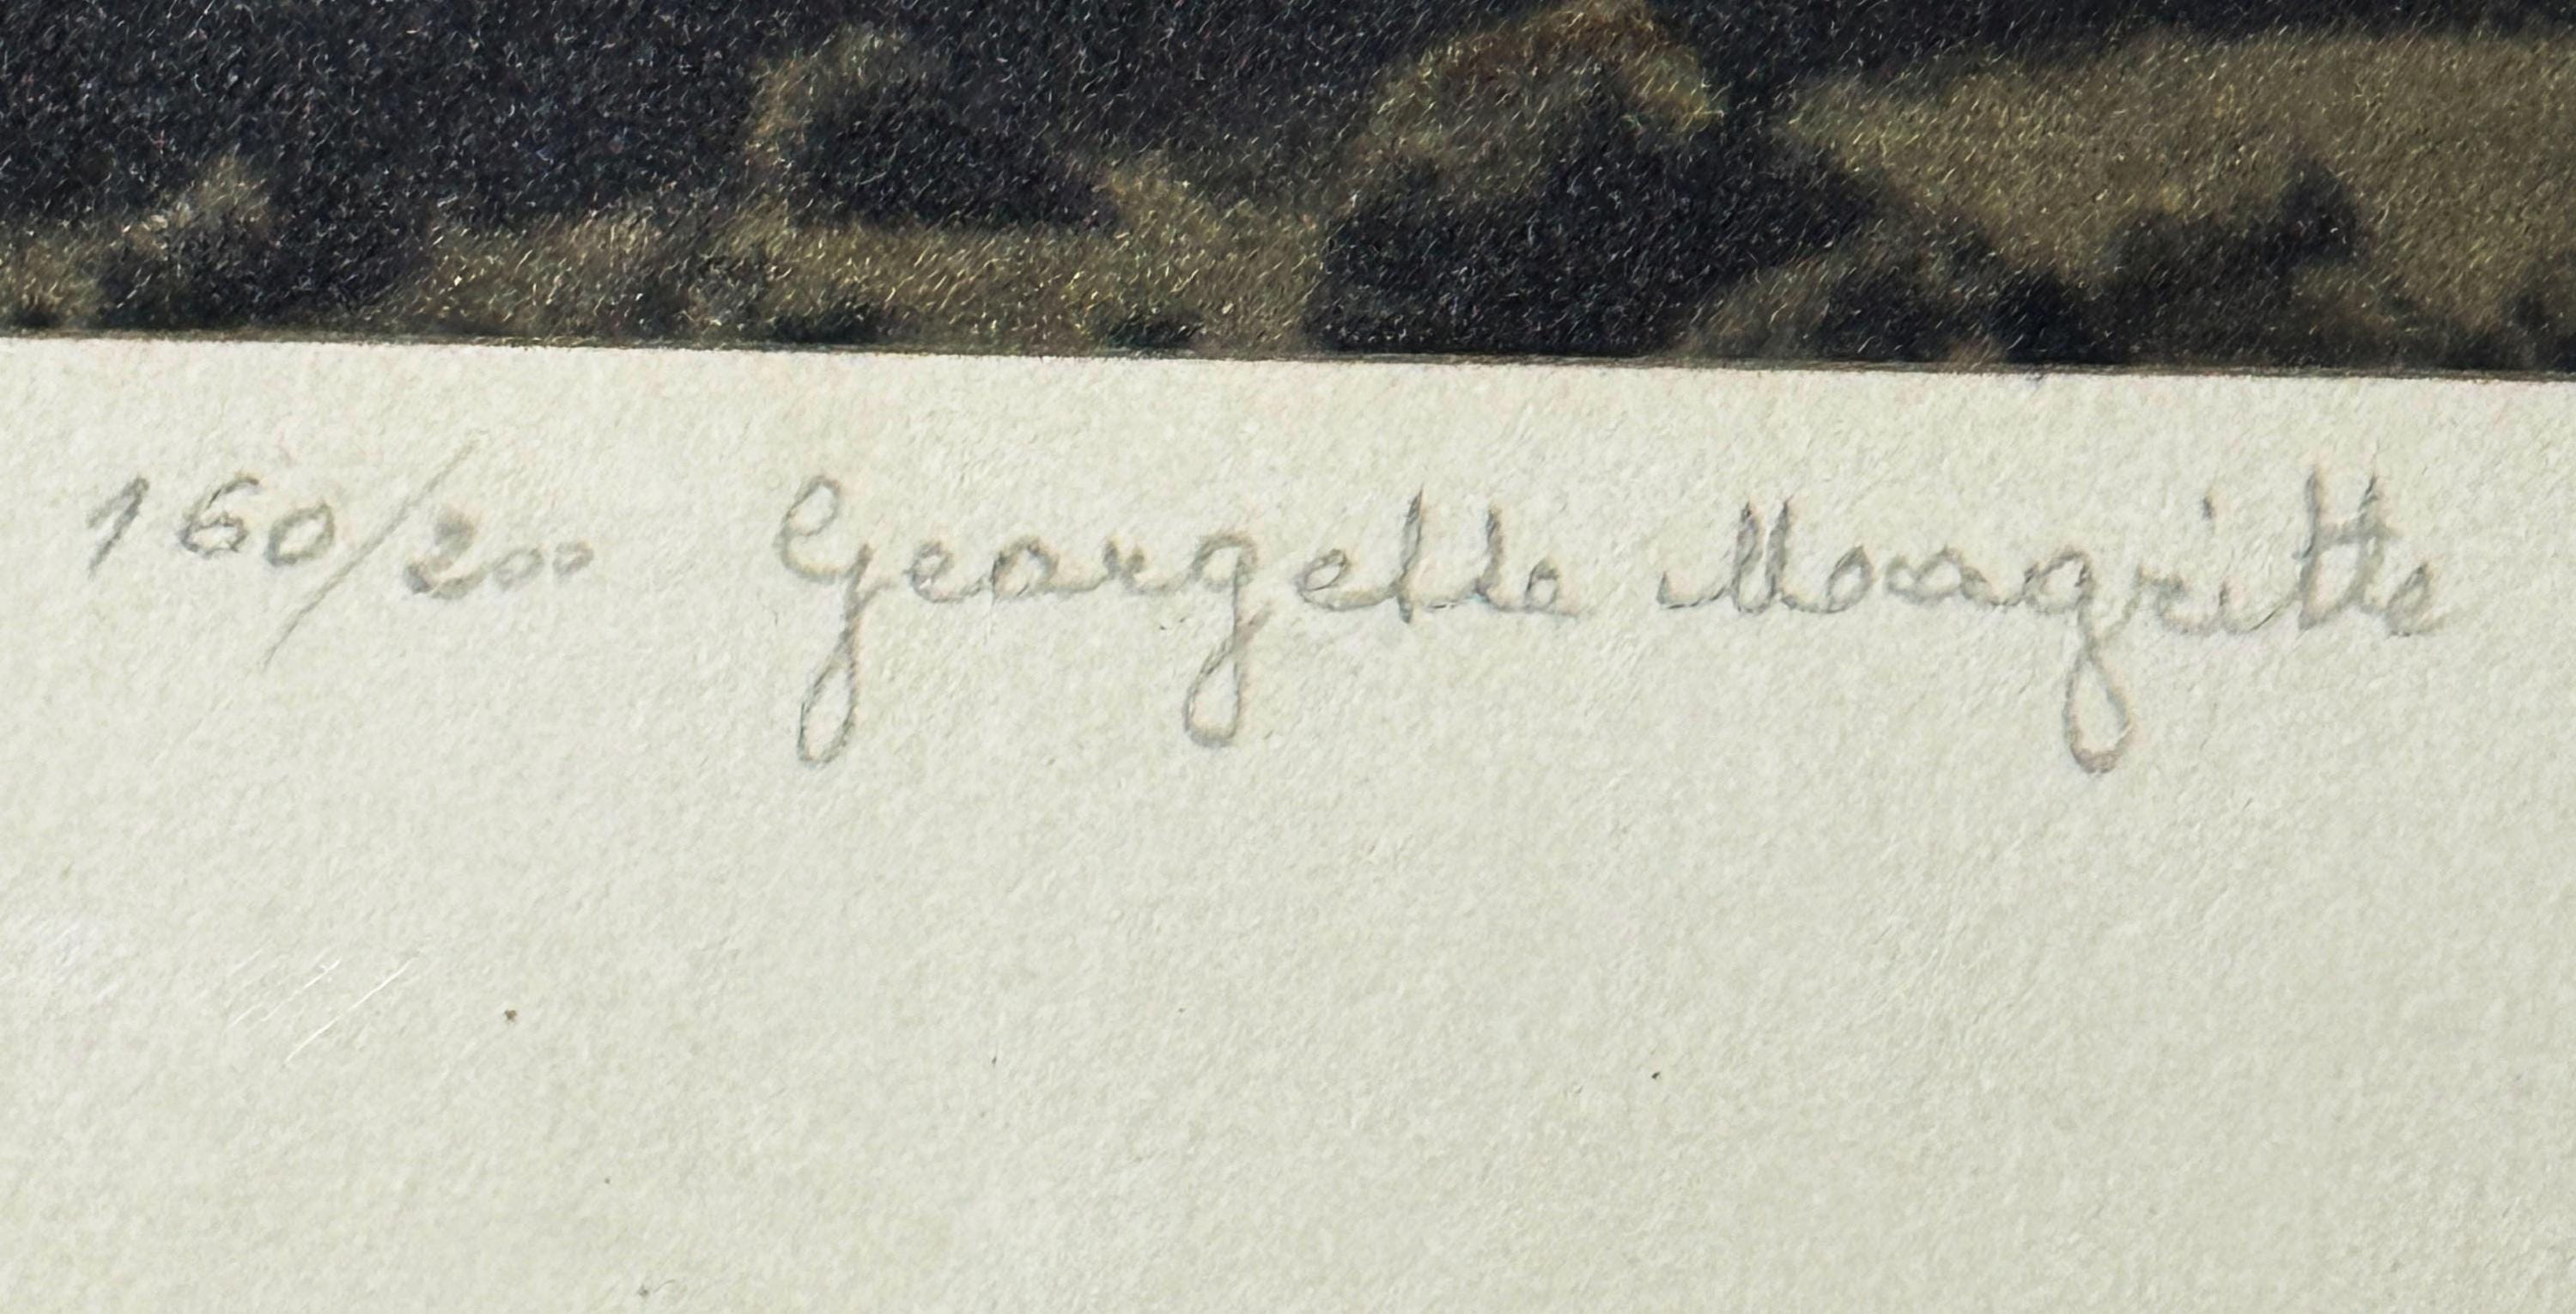 160/200 Georgette Magritte